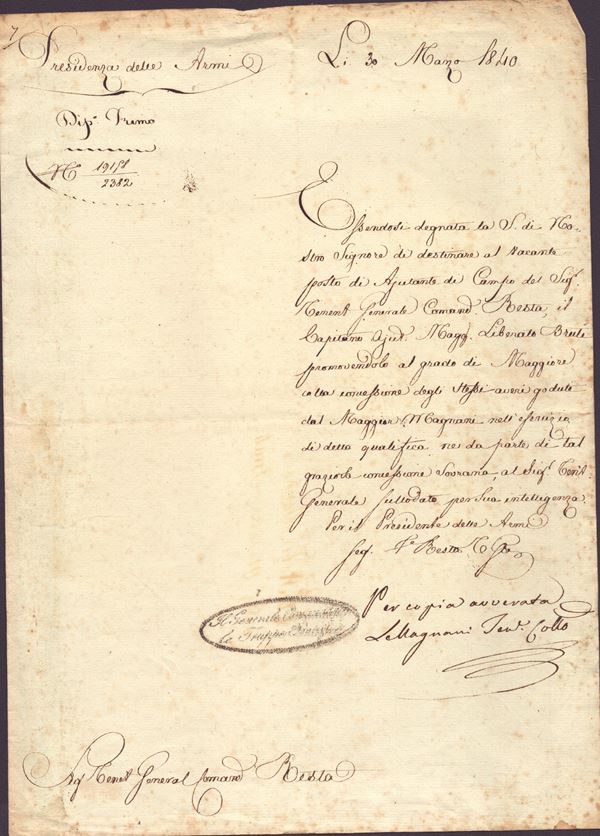 7
Presidenza delle Armi
Li 30 Marzo 1840
Dip.° Primo
N°
2382
Essendosi degnata la S. di No-
stro Signore di destinare al vacante
posto di Ajutante di Campo del Sig.r
Tenent Generale Comand. Resta, il
Capitano Ajut. Magg. Liberato Bruti
promovendolo al grado di Maggiore
colla concessione degli stessi averi goduti
dal Maggior Magnani nell'esercizio
di detta qualifica, ne da parte di tal
graziosa concessione Sovrana, al Sig.r Tent.
Generale sullodato per Sua intelligenza.
Per il Presidente delle Armi
seg. Resta
Per copia avverata
Magnani Ten.e Coll.o
Il Generale Comandante
le Truppe
Sig Tenet General Comand Resta